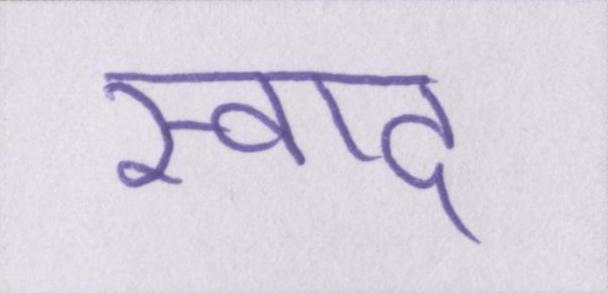 स्वाद